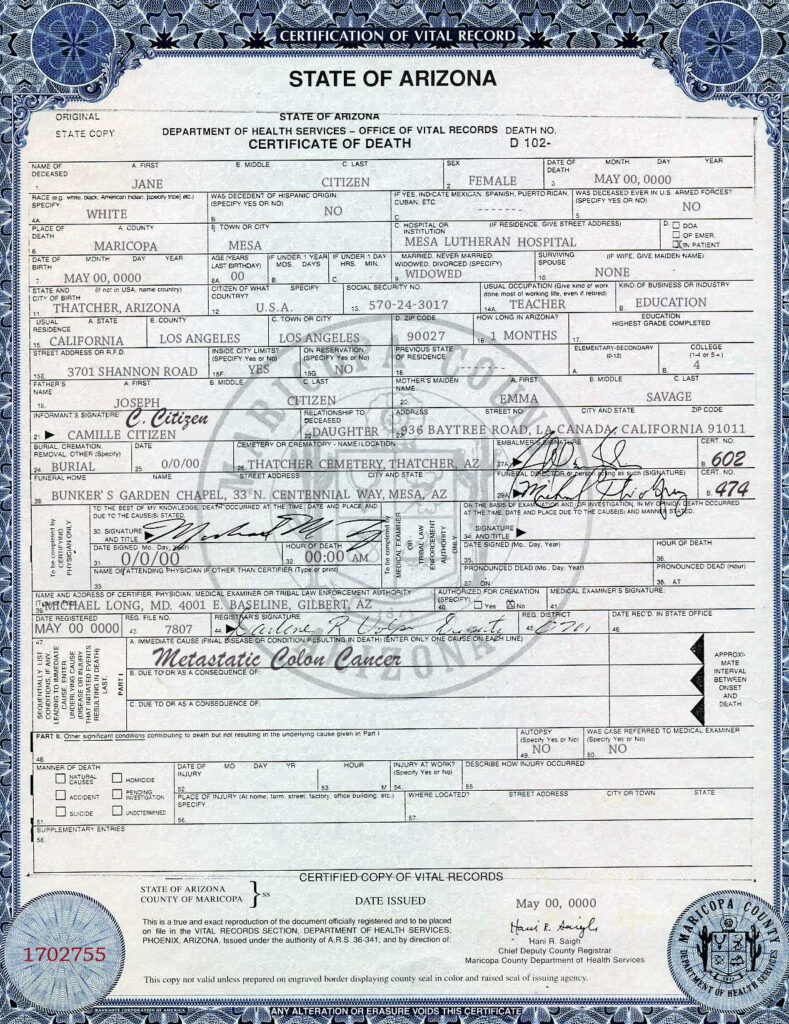 CERTIFICATION OF VITAL RECORD
STATE OF ARIZONA
ORIGINAL
STATE COPY
STATE OF ARIZONA
DEPARTMENT OF HEALTH SERVICES – OFFICE OF VITAL RECORDS DEATH NO.
CERTIFICATE OF DEATH D 102-
NAME OF DECEASED A. FIRST B. MIDDLE C. LAST SEX DATE OF DEATH MONTH DAY YEAR
1. JANE CITIZEN 2. FEMALE 3. MAY 00, 0000
RACE (e.g. white, black, American Indian, (specify tribe) etc.) SPECIFY WAS DECEDENT OF HISPANIC ORIGIN (SPECIFY YES OR NO) IF YES, INDICATE MEXICAN, SPANISH, PUERTO RICAN, CUBAN, ETC. WAS DECEASED EVER IN U.S. ARMED FORCES? (SPECIFY YES OR NO)
4A WHITE B. NO C. - - - - - - 5. NO
PLACE OF DEATH A. COUNTY B. TOWN OR CITY C. HOSPITAL OR INSTITUTION (IF RESIDENCE, GIVE STREET ADDRESS) D. DOA
OF EMER.
6. MARICOPA MESA MESA LUTHERAN HOSPITAL X IN PATIENT
DATE OF BIRTH MONTH DAY YEAR AGE (YEARS LAST BIRTHDAY) IF UNDER 1 YEAR MOS. DAYS IF UNDER 1 DAY HRS. MIN. MARRIED, NEVER MARRIED, WIDOWED, DIVORCED (SPECIFY) SURVIVING SPOUSE (IF WIFE, GIVE MAIDEN NAME)
7. MAY 00, 0000 8A. 00 B. C. 9. WIDOWED 10. NONE
STATE AND CITY OF BIRTH (if not in USA, name country) CITIZEN OF WHAT COUNTRY? SPECIFY SOCIAL SECURITY NO. USUAL OCCUPATION (Give kind of work done most of working life, even if retired) KIND OF BUSINESS OR INDUSTRY
11. THATCHER, ARIZONA 12. U.S.A. 13. 570-24-3017 14A. TEACHER B. EDUCATION
USUAL RESIDENCE A. STATE B. COUNTY C. TOWN OR CITY D. ZIP CODE HOW LONG IN ARIZONA? EDUCATION HIGHEST GRADE COMPLETED
15. CALIFORNIA LOS ANGELES LOS ANGELES 90027 16. 1 MONTHS 17.
STREET ADDRESS OR R.F.D. INSIDE CITY LIMITS? (SPECIFY Yes or No) ON RESERVATION (Specify Yes or No) PREVIOUS STATE OF RESIDENCE ELEMENTARY-SECONDARY (0-12) COLLEGE (1-4 or 5+)
15E. 3701 SHANNON ROAD 15F. YES 15G. NO 18. A. B. 4
FATHER'S NAME A. FIRST B. MIDDLE C. LAST MOTHER'S MAIDEN NAME A. FIRST B. MIDDLE C. LAST
19. JOSEPH CITIZEN 20. EMMA SAVAGE
INFORMANT'S SIGNATURE C. Citizen RELATIONSHIP TO DECEASED ADDRESS STREET NO. CITY AND STATE ZIP CODE
21. CAMILLE CITIZEN 22. DAUGHTER 23. 936 BAYTREE ROAD, LA CANADA, CALIFORNIA 91011
BURIAL, CREMATION, REMOVAL, OTHER (Specify) DATE CEMETERY OR CREMATORY - NAME/LOCATION EMBALMER'S SIGNATURE CERT. NO.
24. BURIAL 25. 0/0/00 26. THATCHER CEMETERY, THATCHER, AZ 27A. B. 602
FUNERAL HOME NAME STREET ADDRESS CITY AND STATE FUNERAL DIRECTOR or person acting as such (SIGNATURE) CERT. NO.
28. BUNKER'S GARDEN CHAPEL, 33 N. CENTENNIAL WAY, MESA, AZ 29A. B. 474
To be completed by CERTIFYING PHYSICIAN ONLY
TO THE BEST OF MY KNOWLEDGE, DEATH OCCURRED AT THE TIME, DATE AND PLACE AND DUE TO THE CAUSE(S) STATED.
30. SIGNATURE AND TITLE
DATE SIGNED (Mo., Day, Year) HOUR OF DEATH
31. 0/0/00 32. 00:00 AM
NAME OF ATTENDING PHYSICIAN IF OTHER THAN CERTIFIER (Type or print)
33.
To be completed by MEDICAL EXAMINER OR TRIBAL LAW ENFORCEMENT AUTHORITY ONLY
ON THE BASIS OF EXAMINATION AND/OR INVESTIGATION, IN MY OPINION DEATH OCCURRED AT THE TIME, DATE AND PLACE DUE TO THE CAUSE(S) AND MANNER STATED.
34. SIGNATURE AND TITLE
DATE SIGNED (Mo., Day, Year) HOUR OF DEATH
35. 36.
PRONOUNCED DEAD (Mo., Day, Year) PRONOUNCED DEAD (Hour)
37. ON 38. AT
NAME AND ADDRESS OF CERTIFIER, PHYSICIAN, MEDICAL EXAMINER OR TRIBAL LAW ENFORCEMENT AUTHORITY AUTHORIZED FOR CREMATION (SPECIFY) MEDICAL EXAMINER'S SIGNATURE:
MICHAEL LONG, MD. 4001 E. BASELINE, GILBERT, AZ 40. Yes X No 41.
DATE REGISTERED REG. FILE NO. REGISTRAR'S SIGNATURE REG. DISTRICT DATE REC'D. IN STATE OFFICE
MAY 00 0000 43. 7807 44. 45. 46.
47. SEQUENTIALLY LIST CONDITIONS, IF ANY, LEADING TO IMMEDIATE CAUSE. ENTER UNDERLYING CAUSE (DISEASE OR INJURY THAT INITIATED EVENTS RESULTING IN DEATH) LAST.
PART I
A. IMMEDIATE CAUSE (FINAL DISEASE OR CONDITION RESULTING IN DEATH) (ENTER ONLY ONE CAUSE ON EACH LINE)
Metastatic Colon Cancer
B. DUE TO OR AS A CONSEQUENCE OF:
C. DUE TO OR AS A CONSEQUENCE OF:
APPROXIMATE INTERVAL BETWEEN ONSET AND DEATH
PART II. Other significant conditions contributing to death but not resulting in the underlying cause given in Part I AUTOPSY (Specify Yes or No) WAS CASE REFERRED TO MEDICAL EXAMINER (Specify Yes or No)
48. 49. NO 50. NO
MANNER OF DEATH DATE OF INJURY MO DAY YR HOUR INJURY AT WORK? (Specify Yes or No) DESCRIBE HOW INJURY OCCURRED
NATURAL CAUSES HOMICIDE 52. 53. M 54. 55.
ACCIDENT PENDING INVESTIGATION PLACE OF INJURY (At home, farm, street, factory, office building, etc.) SPECIFY WHERE LOCATED? STREET ADDRESS CITY OR TOWN STATE
51. SUICIDE UNDETERMINED 56. 57.
SUPPLEMENTARY ENTRIES
58.
CERTIFIED COPY OF VITAL RECORDS
STATE OF ARIZONA
COUNTY OF MARICOPA } ss
DATE ISSUED May 00, 0000
This is a true and exact reproduction of the document officially registered and to be placed
on file in the VITAL RECORDS SECTION, DEPARTMENT OF HEALTH SERVICES,
PHOENIX, ARIZONA. Issued under the authority of A.R.S. 36-341, and by direction of:
Hani R. Saigh
Hani R. Saigh
Chief Deputy County Registrar
Maricopa County Department of Health Services
1702755
This copy not valid unless prepared on engraved border displaying county seal in color and raised seal of issuing agency.
MARICOPA COUNTY
DEPARTMENT OF HEALTH SERVICES
MARICOPA COUNTY
ARIZONA
ANY ALTERATION OR ERASURE VOIDS THIS CERTIFICATE